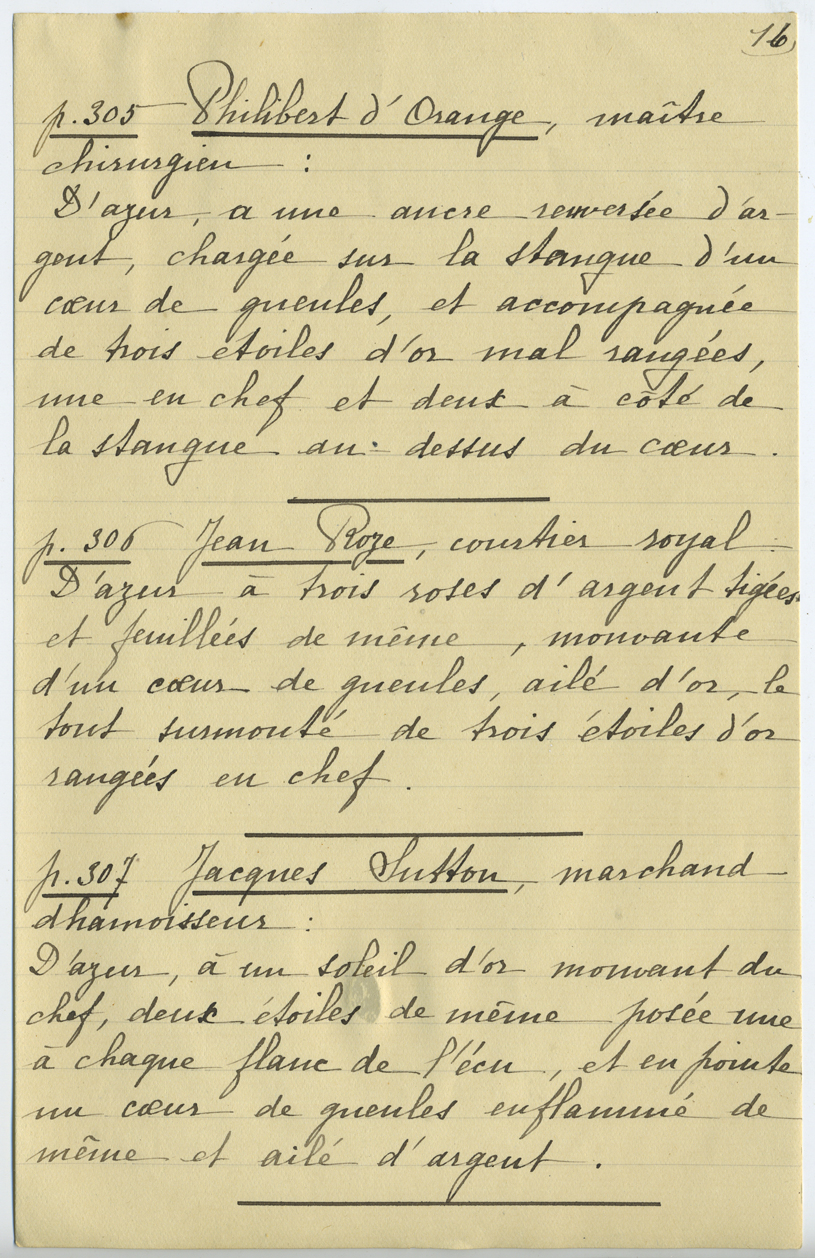 16
p. 305 Philibert d'Orange, maître
chirurgien :
D'azur, a une ancre renversée d'ar-
gent, chargée sur la stangue d'un
cœur de gueules, et accompagnée
de trois etoiles d'or mal rangées,
une en chef et deux à côté de
la stangue au-dessus du cœur.
p. 306 Jean Roze, courtier royal :
D'azur à trois roses d'argent tigées
et feuillées de même, mouvante
d'un cœur de gueules, ailé d'or, le
tout surmonté de trois étoiles d'or
rangées en chef.
p. 307 Jacques Sutton, marchand
chamoisseur :
D'azur, à un soleil d'or mouvant du
chef, deux étoiles de même posée une
à chaque flanc de l'écu, et en pointe
un cœur de gueules enflammé de
même et ailé d'argent.